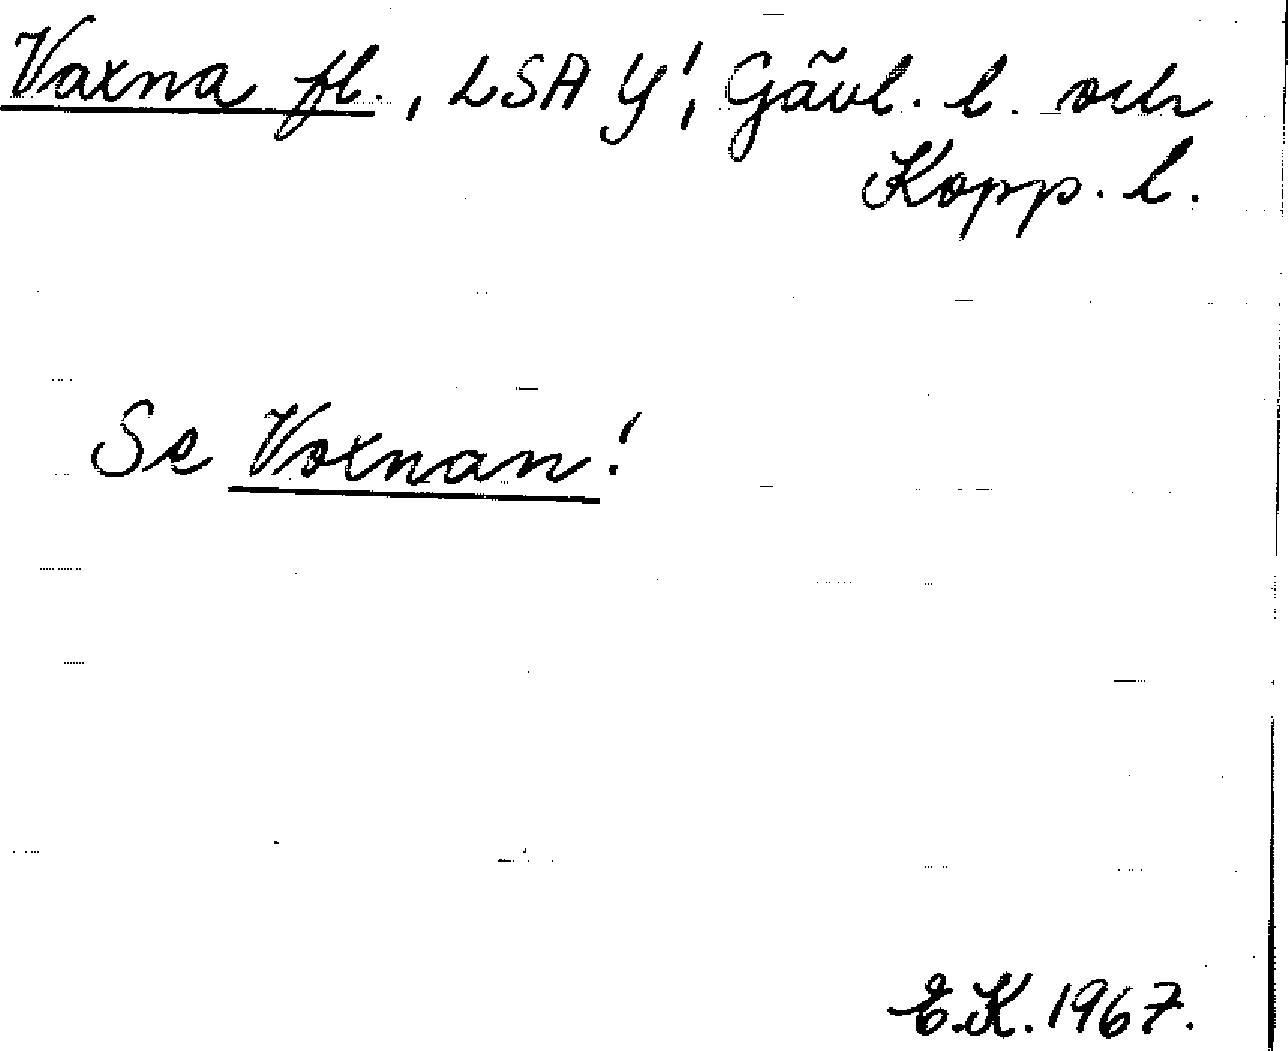 Vaxna fl., LSA Y!, Gävl. l. och
Kopp. l.
Se Voxnan!
E.K. 1967.